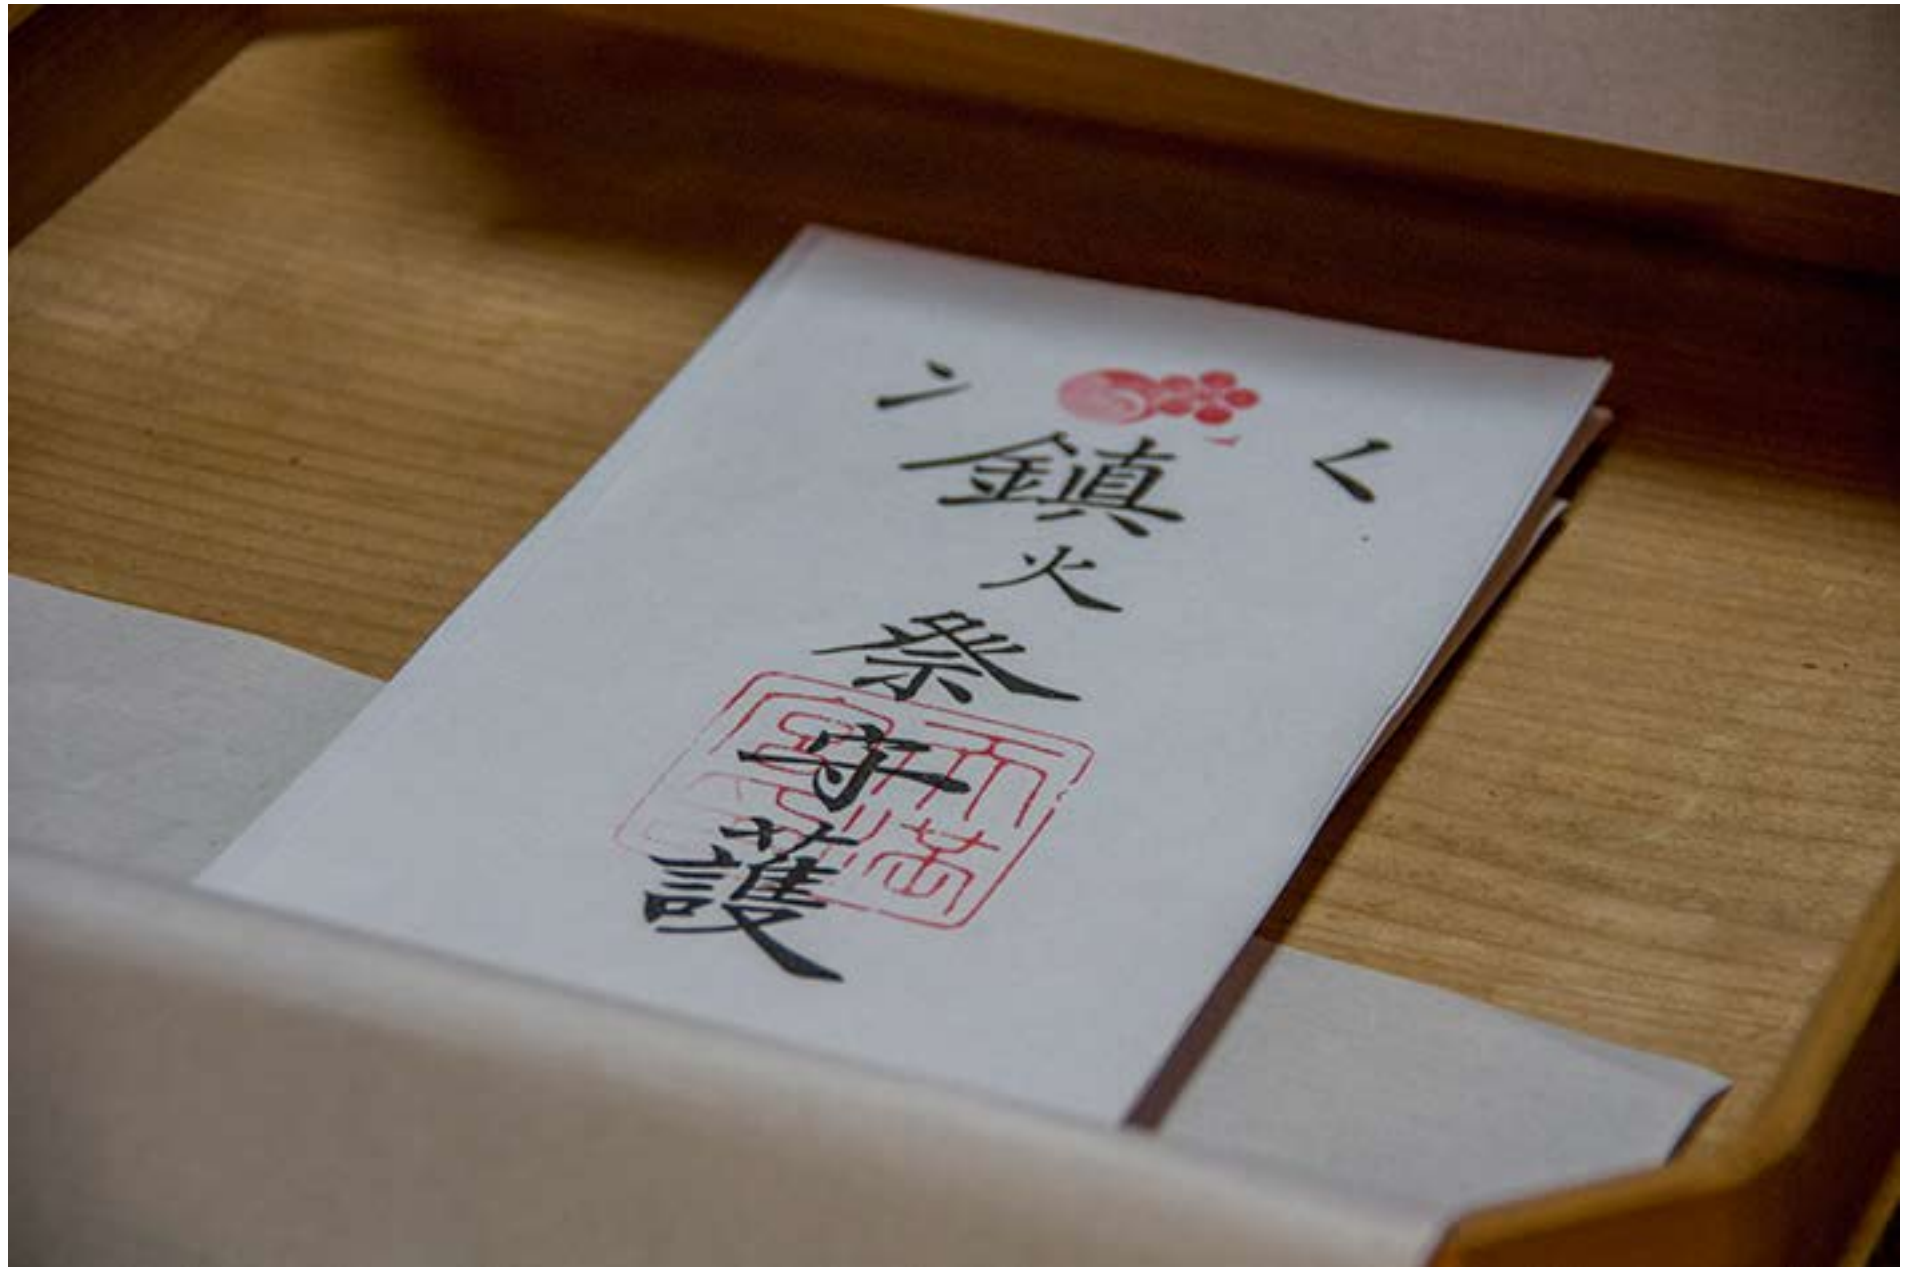 鎮火祭守護